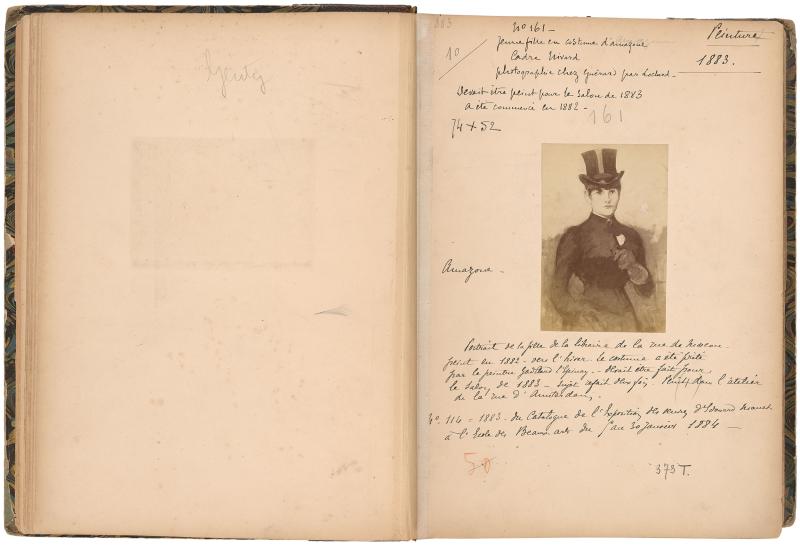 883
10
No 161 -
Jeune fille en costume d'amazone
Cadre Nivard
photographie chez Guérard par Lochard -
Peinture
1883.
Devait être peint pour le Salon de 1883
a été commencé en 1882 -
161
74 x 52
Amazone -
Portrait de la fille de la libraire de la rue de Moscou -
peint en 1882 - vers l'hiver - le costume a été prêté
par le peintre Gallard l'Epinay - devait être fait pour
le Salon de 1883 - sujet refait des fois - Peint dans l'atelier
de la rue d'Amsterdam.
No. 114 = 1883 - du Catalogue de l'Exposition des œuvres d'Edouard Manet
à l'Ecole des Beaux arts du 5 au 30 Janvier 1884 -
50
373 T.